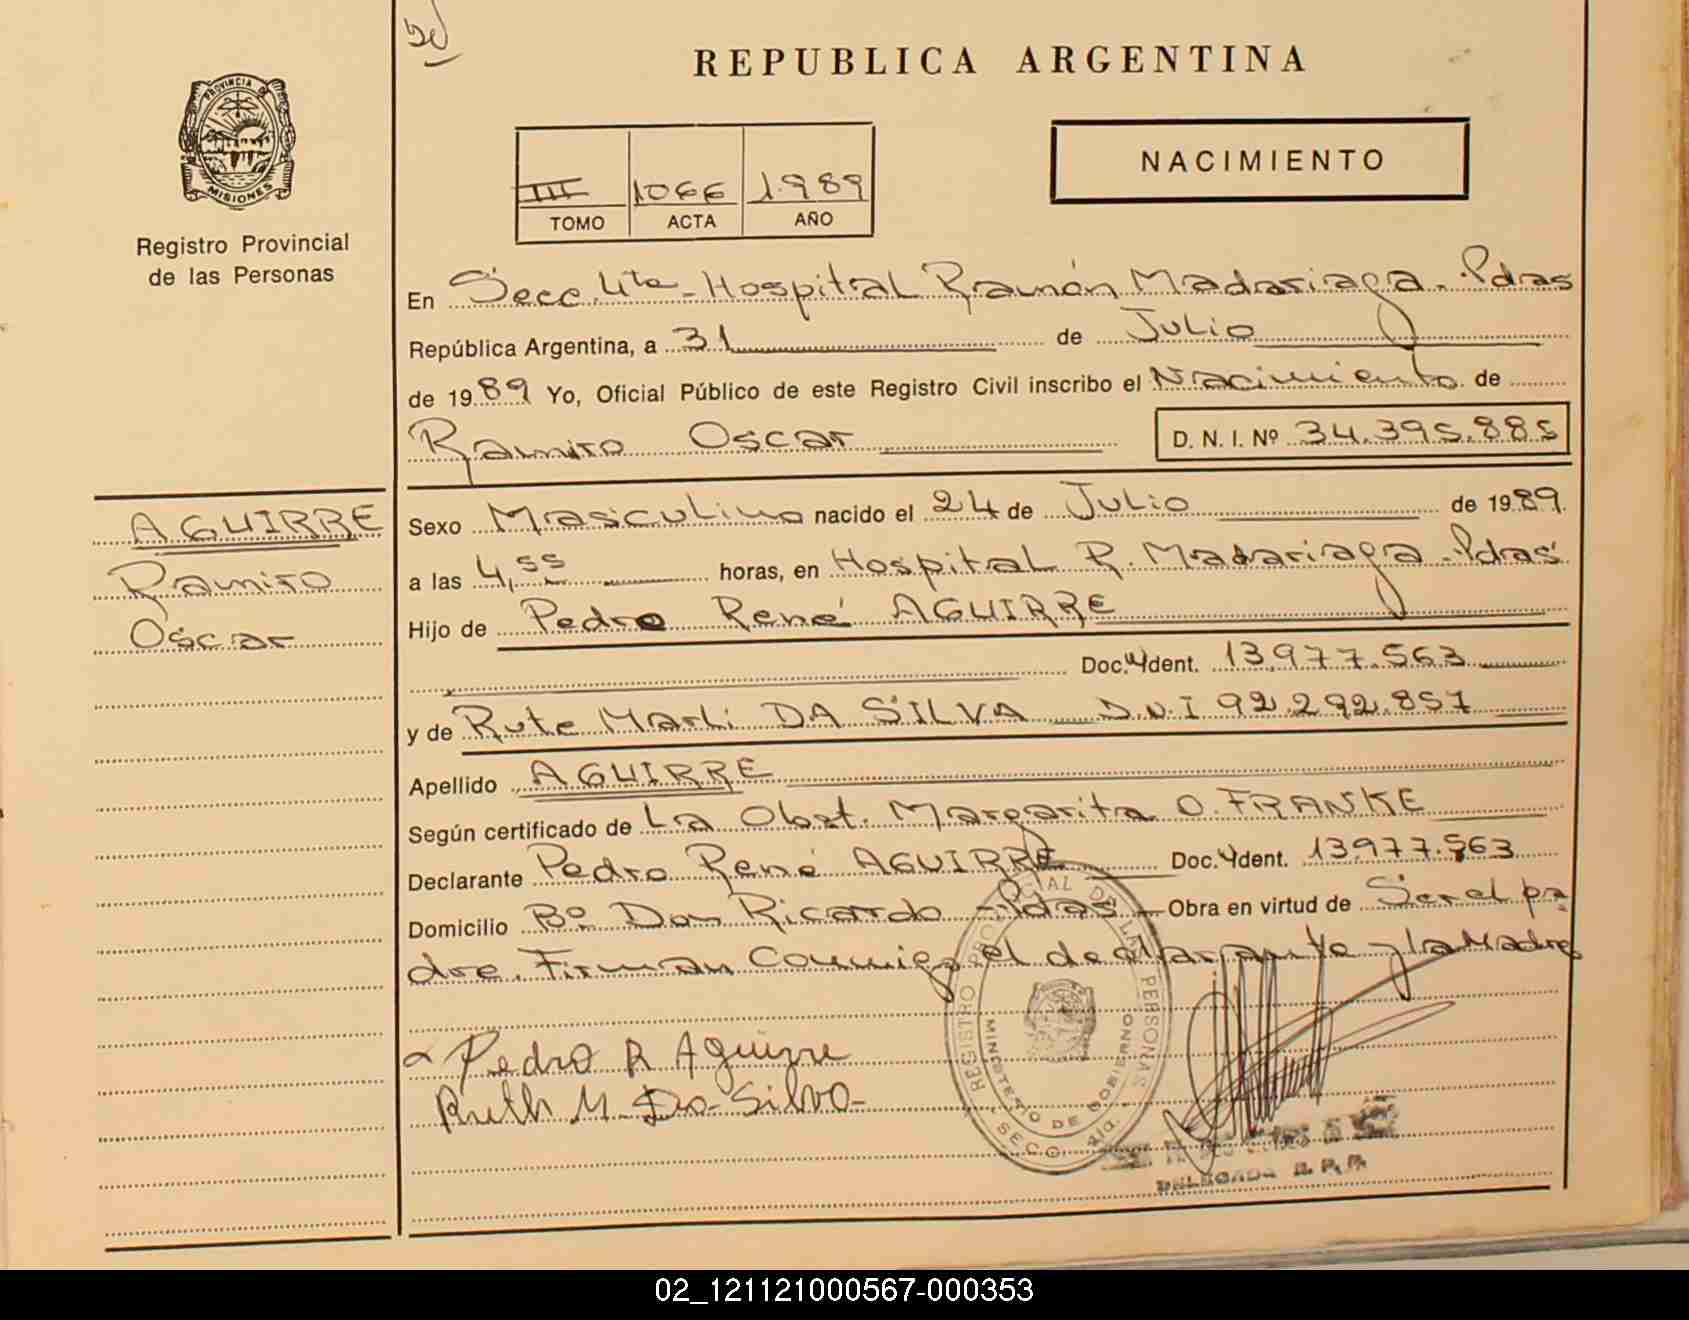 REPUBLICA ARGENTINA
PROVINCIA DE
MISIONES
Registro Provincial
de las Personas
III 1066 1.989
TOMO ACTA AÑO
NACIMIENTO
En Secc. 4ta - Hospital Ramón Madariaga. Pdas
República Argentina, a 31 de Julio
de 1989 Yo, Oficial Público de este Registro Civil inscribo el Nacimiento de
Ramiro Oscar D. N. I. Nº 34.395.885
AGUIRRE
Ramiro
Oscar
Sexo Masculino nacido el 24 de Julio de 1989.
a las 4,55 horas, en Hospital R. Madariaga. Pdas
Hijo de Pedro René AGUIRRE
Doc. Ident. 13.977.563
y de Rute Marli DA SILVA D.N.I 92.292.857
Apellido AGUIRRE
Según certificado de La Obst. Margarita O. FRANKE
Declarante Pedro René AGUIRRE Doc. Ident. 13.977.563
Domicilio Bº. Don Ricardo - Pdas Obra en virtud de Ser el pa
dre. Firman Conmigo el declarante y la Madre
Pedro R Aguirre
Ruth M. Da Silva
REGISTRO PROVINCIAL DE LAS PERSONAS
MINISTERIO DE GOBIERNO
SECC. 4ta.
DELEGADA R. P. P.
02_121121000567-000353